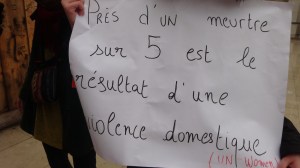 PRÈS d'UN meurtre
sur 5 est le
résultat d'une
violence domestique
(UN Women